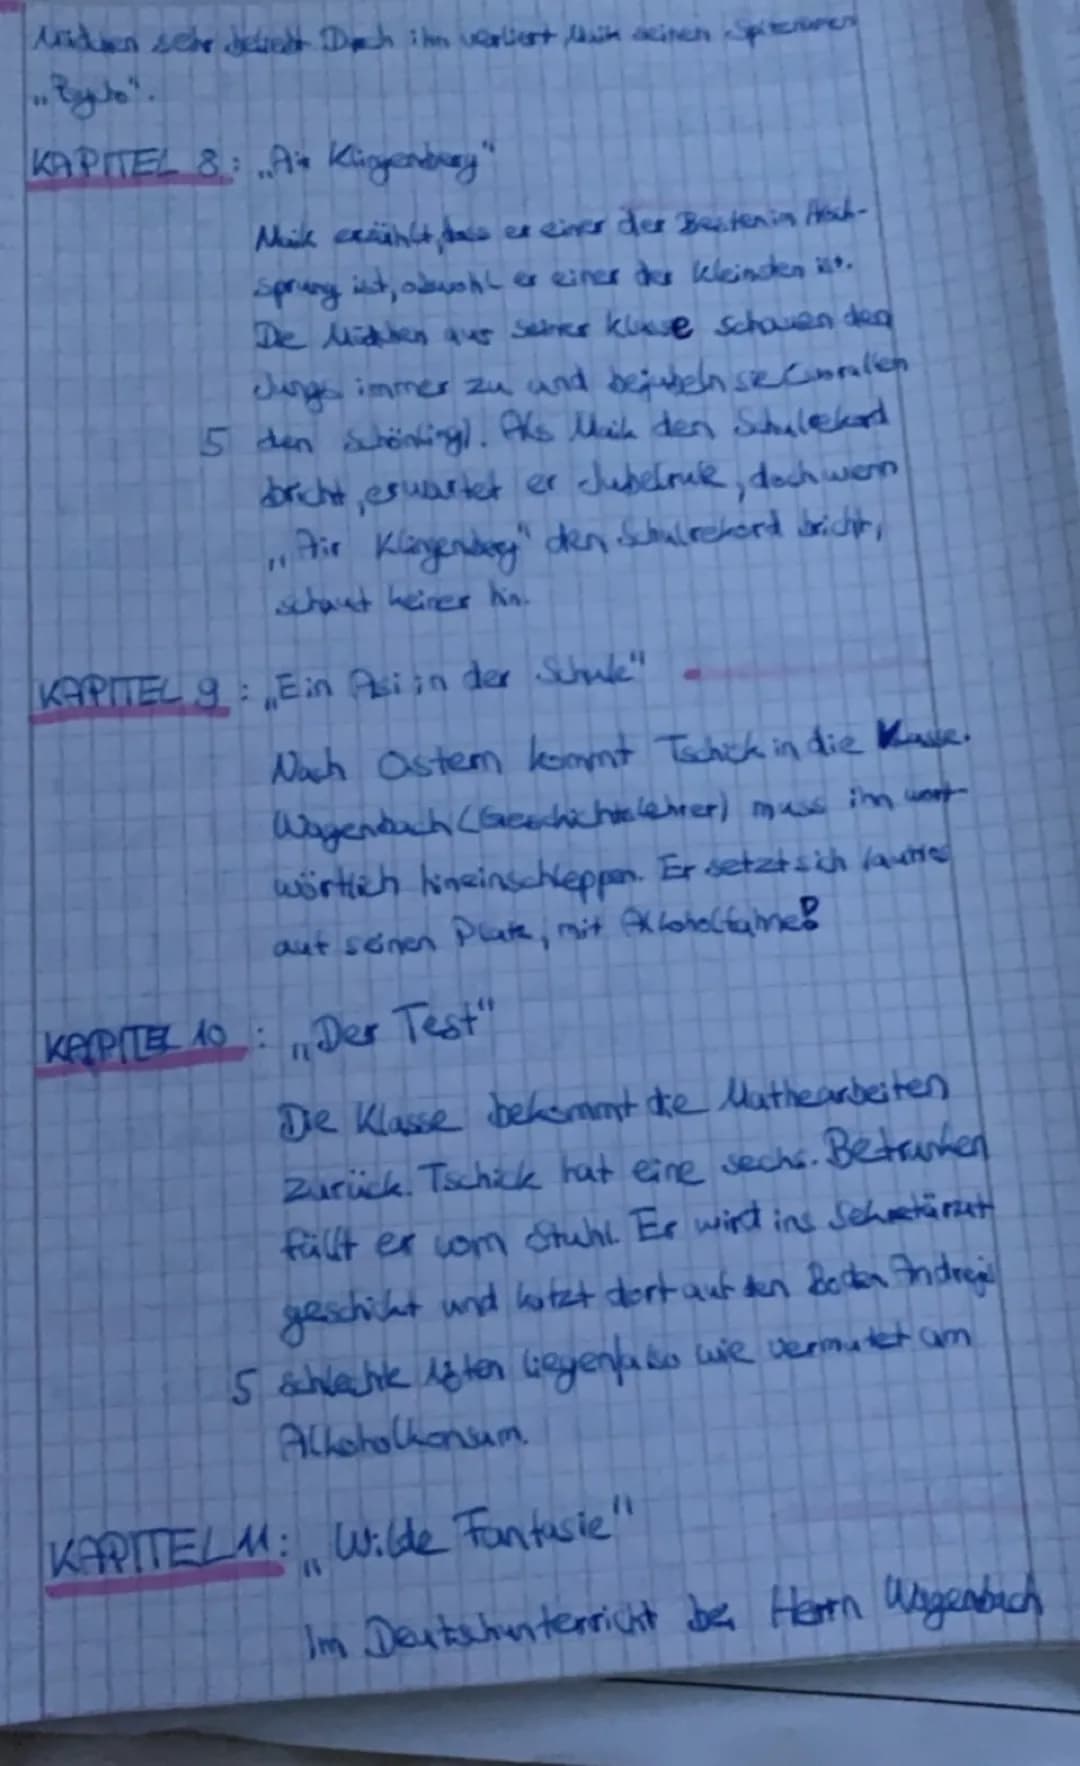 Mädchen sehr beliebt. Durch ihn verliert Maik seinen Spitznamen
„Psycho".
KAPITEL 8: „Air Klingenberg"
Maik erzählt, dass er einer der Besten in Hoch-
sprung ist, obwohl er einer der kleinsten ist.
Die Mädchen aus seiner Klasse schauen den
Jungs immer zu und bejubeln sie (vor allen
5 den Schönling). Als Maik den Schulrekord
bricht, erwartet er Jubelrufe, doch wenn
„Air Klingenberg" den Schulrekord bricht,
schaut keiner hin.
KAPITEL 9: „Ein Asi in der Schule"
Nach Ostern kommt Tschick in die Klasse.
Wagenbach (Geschichtslehrer) muss ihn wort-
wörtlich hineinschleppen. Er setzt sich lautlos
auf seinen Platz, mit Alkoholfahne!
KAPITEL 10: „Der Test"
Die Klasse bekommt die Mathearbeiten
zurück. Tschick hat eine sechs. Betrunken
fällt er vom Stuhl. Er wird ins Sekretärat
geschickt und kotzt dort auf den Boden. Andrejs
5 schlechte liegen also wie vermutet am
Alkoholkonsum.
KAPITEL 11: „Wilde Fantasie"
Im Deutschunterricht bei Herrn Wagenbach